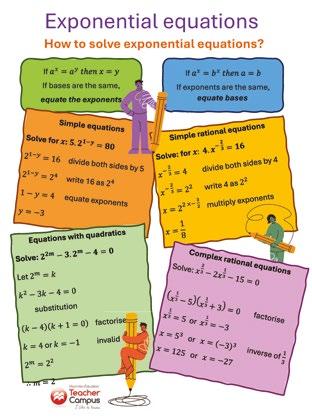 Exponential equations
How to solve exponential equations?
If aˣ = aʸ then x = y
If bases are the same,
equate the exponents
If aˣ = bˣ then a = b
If exponents are the same,
equate bases
Simple equations
Solve for x: 5. 2¹⁻ʸ = 80
2¹⁻ʸ = 16 divide both sides by 5
2¹⁻ʸ = 2⁴ write 16 as 2⁴
1 − y = 4 equate exponents
y = −3
Simple rational equations
Solve: for x: 4. x^(−2/3) = 16
x^(−2/3) = 4 divide both sides by 4
x^(−2/3) = 2² write 4 as 2²
x = 2^(2 × −3/2) multiply exponents
x = 1/8
Equations with quadratics
Solve: 2²ᵐ − 3.2ᵐ − 4 = 0
Let 2ᵐ = k
k² − 3k − 4 = 0
substitution
(k − 4)(k + 1 = 0) factorise
k = 4 or k = −1 invalid
2ᵐ = 2²
∴ m = 2
Complex rational equations
Solve: x^(2/3) − 2x^(1/3) − 15 = 0
(x^(1/3) − 5)(x^(1/3) + 3) = 0 factorise
x^(1/3) = 5 or x^(1/3) = −3
x = 5³ or x = (−3)³ inverse of 1/3
x = 125 or x = −27
Teacher
Campus